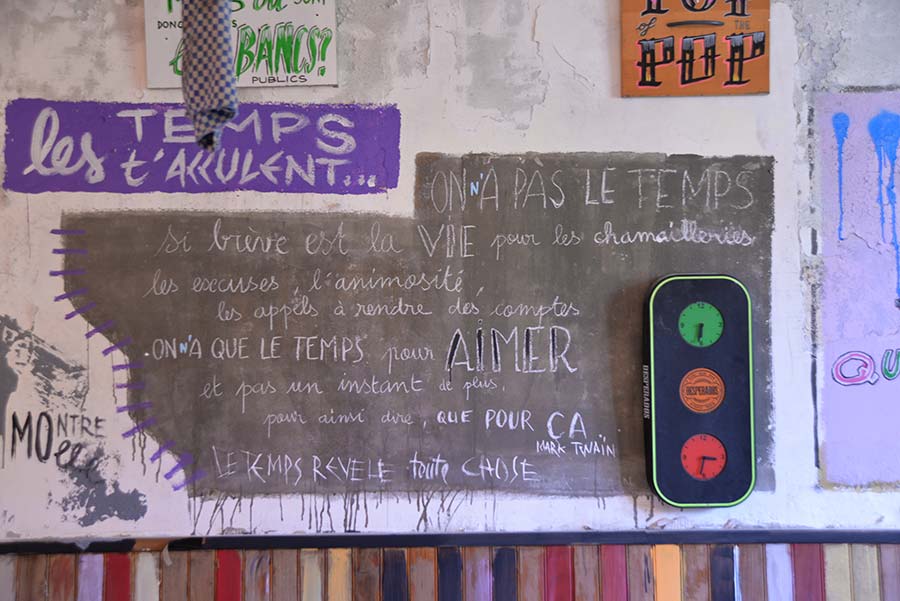 DONC
SONT
BANCS?
PUBLICS
of THE
POP
les TEMPS
t'ACCULENT...
ON N'A PAS LE TEMPS
si brève est la VIE pour les chamailleries
les excuses, l'animosité,
les appels à rendre des comptes
ON N'A QUE LE TEMPS pour AIMER
et pas un instant de plus,
pour ainsi dire, QUE POUR ÇA
MARK TWAIN
LE TEMPS REVELE toute CHOSE
MONTRE
DESPERADOS
DESPERADOS
QU